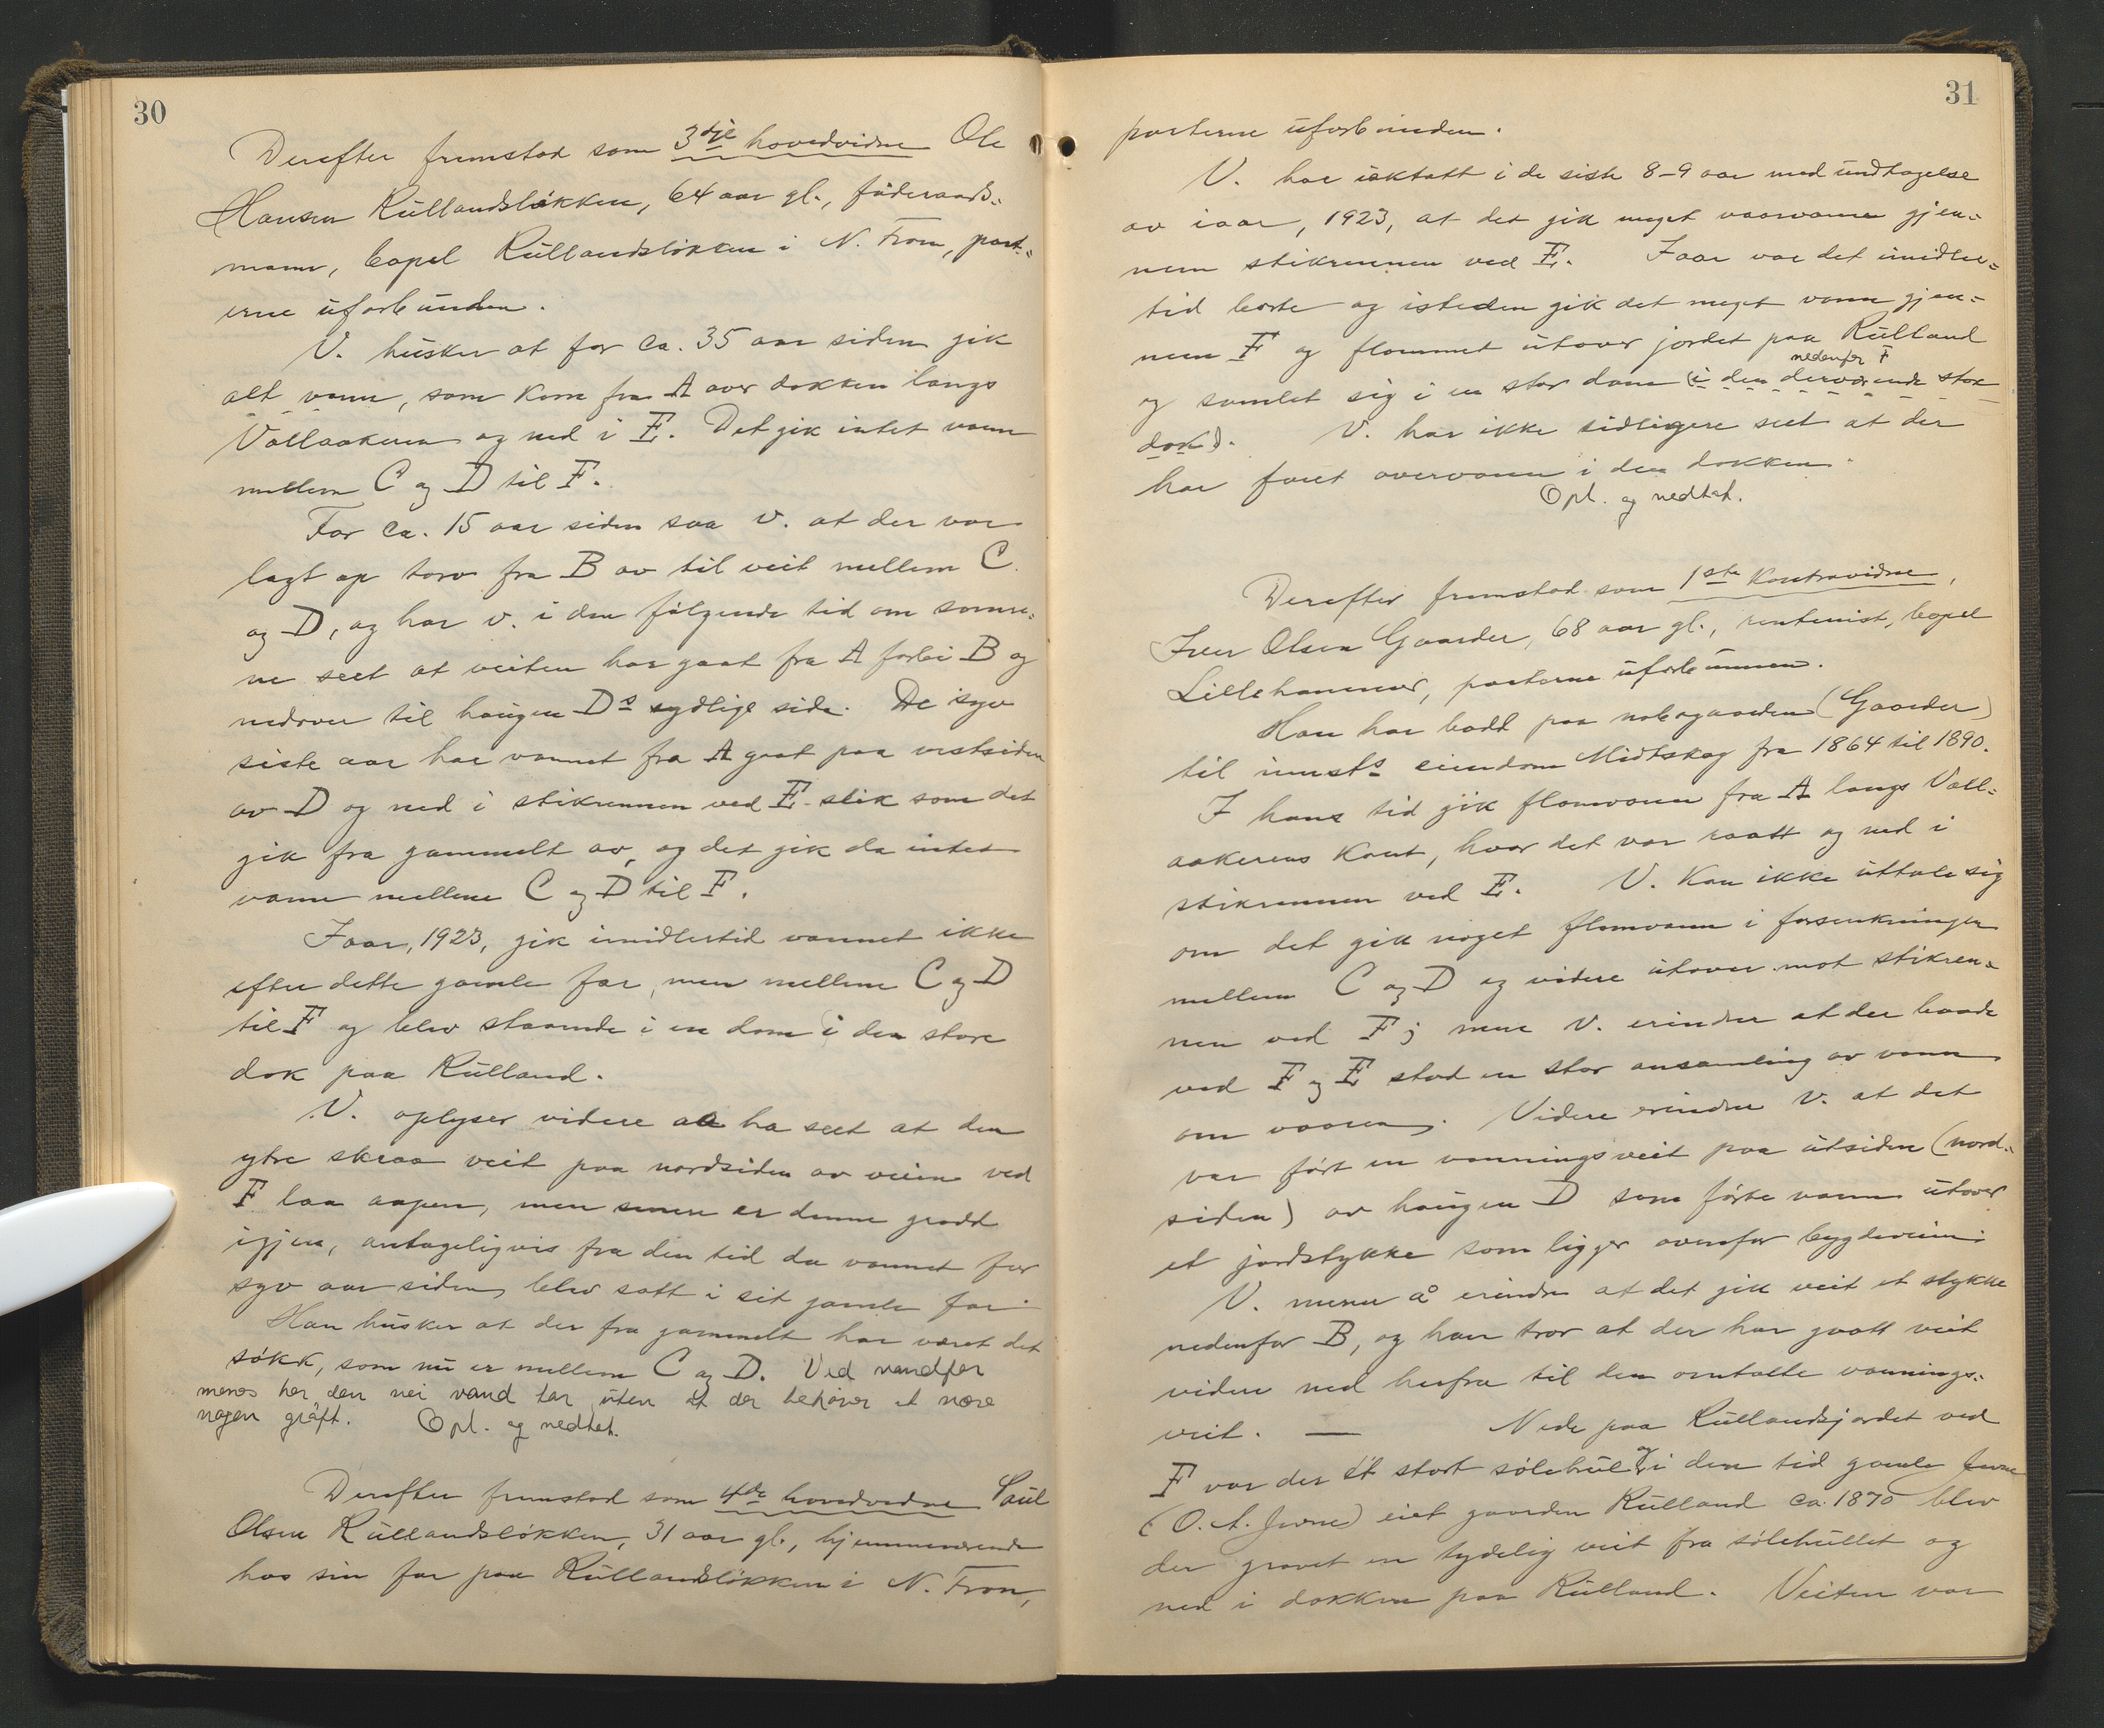 30
Derefter fremstod som 3dje hovedvidne Ole
Hansen Rullandsløkken, 64 aar gl., föderaads-
mann, bopel Rullandsløkken i N. Fron, part-
erne uforbunden.
V. husker at for ca. 35 aar siden gik
alt vann, som kom fra A over dokken langs
Vollaakeren og ned i E. Det gik intet vann
mellem C og D til F.
For ca. 15 aar siden saa v. at der var
lagt op torv fra B av til veit mellem C
og D, og har v. i den fölgende tid om somre-
ne seet at veiten har gaat fra A forbi B og
nedover til haugen Ds sydlige side. De syv
siste aar har vannet fra A gaat paa vestsiden
av D og ned i stikrennen ved E slik som det
gik fra gammelt av, og det gik da intet
vann mellem C og D til F.
Iaar, 1923, gik imidlertid vannet ikke
efter dette gamle far, men mellem C og D
til F og blev staaende i en dam i den store
dok paa Rulland.
V. oplyser videre aa ha seet at den
ytre skraa veit paa nordsiden av veien ved
F laa aapen, men senere er denne grodd
igjen, antageligvis fra den tid da vannet for
syv aar siden blev satt i sit gamle far.
Han husker at der fra gammelt har været det
søkk, som nu er mellem C og D. Ved vandfar
menes her den vei vand tar uten at der behøver at være
nogen grøft. Opl. og nedtat.
Derefter fremstod som 4de hovedvidne Paul
Olsen Rullandsløkken, 31 aar gl., hjemmeværende
hos sin far paa Rullandsløkken i N. Fron,
31
parterne uforbunden.
V. har iakttatt i de siste 8-9 aar med undtagelse
av iaar, 1923, at det gik meget vaarvann gjen-
nem stikrennen ved E. Iaar var det imidler-
tid borte og isteden gik det meget vann gjen-
nem F og flommet utover jordet paa Rulland
nedenfor F
og samlet sig i en stor dam (i den derværende store
dok). V. har ikke tidligere seet at der
har faret overvann i den dokken.
Opl. og nedtat.
Derefter fremstod som 1ste kontravidne,
Iver Olsen Gaarder, 68 aar gl., rentenist, bopel
Lillehammer, parterne uforbunnen.
Han har bodd paa nabogaarden (Gaarder)
til innsts eiendom Midtskog fra 1864 til 1890.
I hans tid gik flomvann fra A langs Voll-
aakerens kant, hvor det var raatt og ned i
stikrennen ved E. V. kan ikke uttale sig
om det gik noget flomvann i forsenkningen
mellem C og D og videre utover mot stikren-
nen ved F; men v. erindrer at der baade
ved F og E stod en stor ansamling av vann
om vaaren. Videre erindrer v. at det
var fört en vanningsveit paa utsiden (nord-
siden) av haugen D som förte vann utover
et jordstykke som ligger ovenfor bygdeveien.
V. mener å erindre at det gik veit et stykke
nedenfor B, og han tror at der har gaatt veit
videre ned herfra til den omtalte vannings-
veit. — Nede paa Rullandsjordet ved
F var der et stort sölehul og i den tid gamle Juvne
(O. A. Juvne) eiet gaarden Rulland ca. 1870 blev
der gravet en tydelig veit fra sölehullet og
ned i dokken paa Rulland. Veiten var